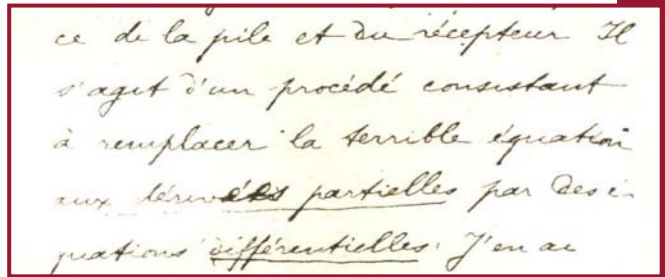 ce de la pile et du récepteur Il
s'agit d'un procédé consistant
à remplacer la terrible équation
aux dérivées partielles par des é-
quations différentielles. J'en ai